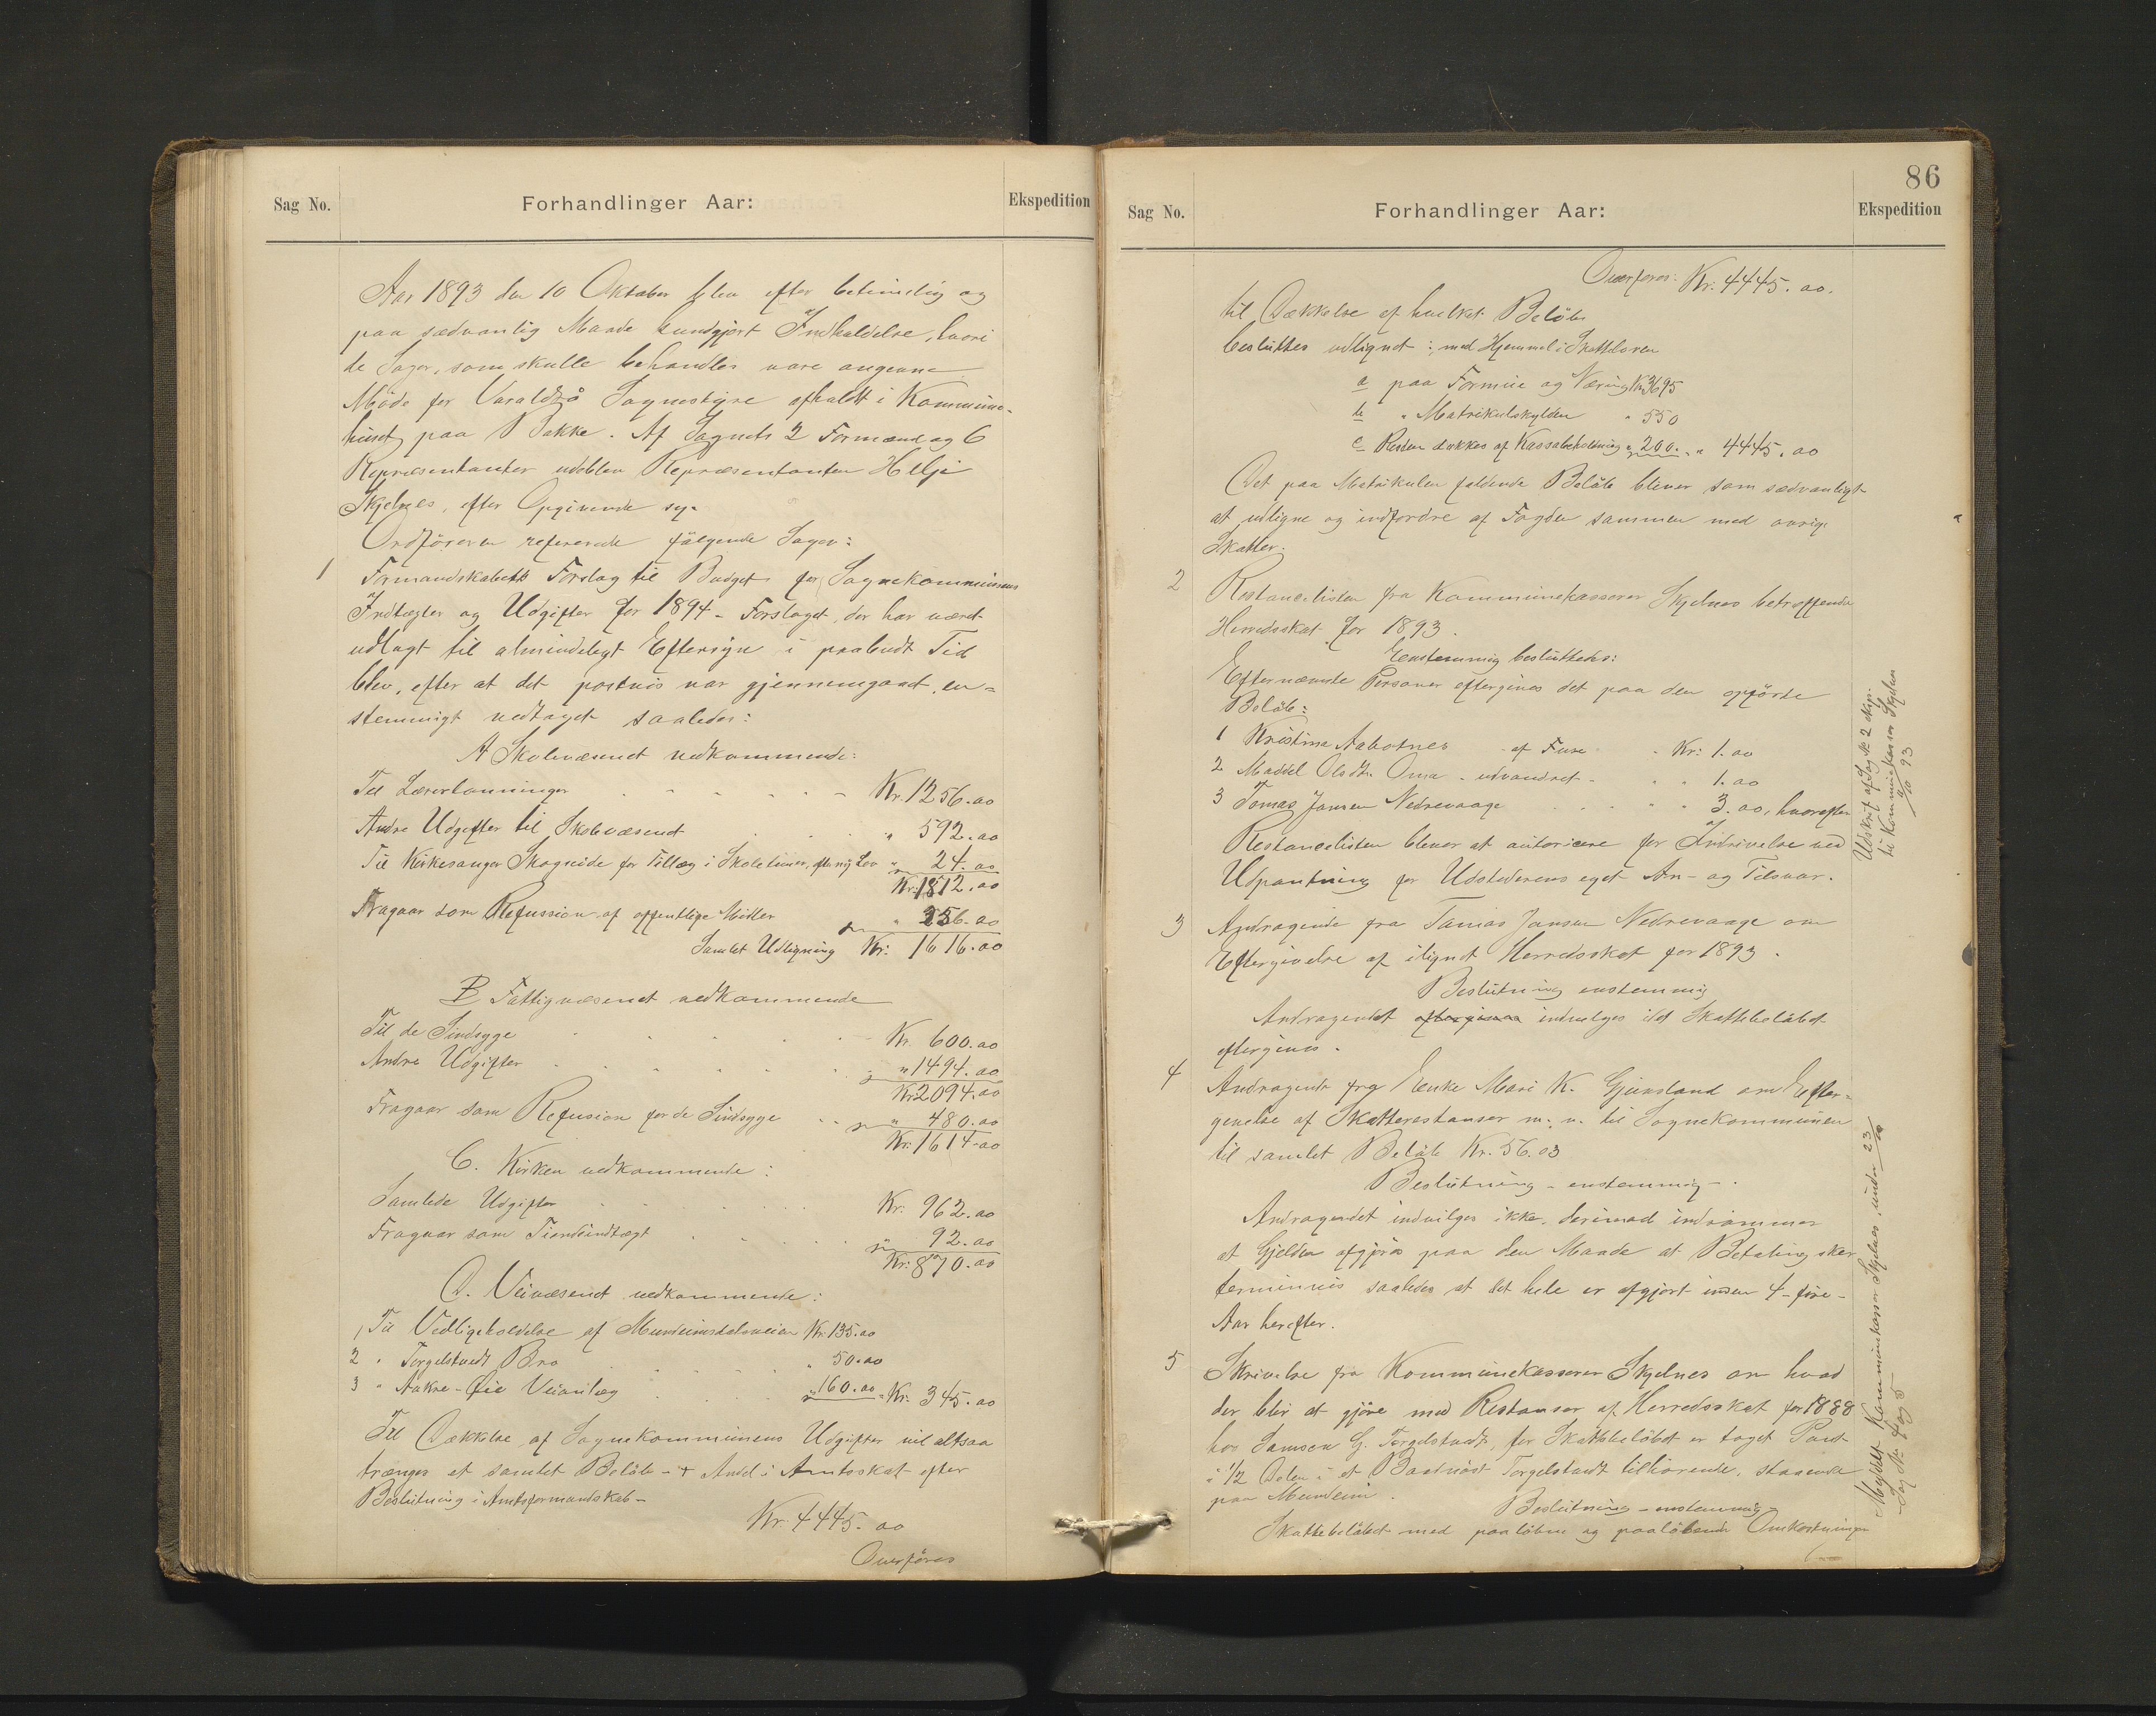 Sag No.
Forhandlinger Aar:
Ekspedition
Aar 1893 den 10 Oktober blev efter betimelig og
paa sædvanlig Maade kundgjort Indkaldelse, hvori
de Sager, som skulle behandles vare angivne
Möde for Varaldsö Sognestyre afholdt i Kommune-
huset paa Bakke. Af Sognets 2 Formænd og 6
Repræsentanter udeblev Repræsentanten Helje
Skjelnes, efter Opgivende syg.
Ordföreren refererede fölgende Sager:
1 Formandskabets Forslag til Budget for Sognekommunens
Indtægter og Udgifter for 1894 - Forslaget, der har været
udlagt til almindeligt Eftersyn i paabudt Tid
blev, efter at det postvis var gjennemgaaet, en-
stemmigt vedtaget saaledes:
A Skolevæsenet vedkommende:
Til Lærerlønninger Kr. 1256.00
Andre Udgifter til Skolevæsenet " 592.00
Til Kirkesanger Skogseide for Tillæg i Skoletimer, efter ny Lov " 24.00
Kr. 1812.00
Fragaar som Refussion af offentlige Midler " 256.00
Samlet Udligning Kr: 1616.00
B Fattigvæsenet vedkommende
Til de Sindsyge Kr. 600.00
Andre Udgifter " 1494.00
Kr. 2094.00
Fragaar som Refusion for de Sindsyge " 480.00
Kr. 1614.00
C. Kirken vedkommende:
Samlede Udgifter Kr: 962.00
Fragaar som Tiendeindtægt 92.00
Kr: 870.00
D. Veivæsenet vedkommende:
1 Til Vedligeholdelse af Mundeimsdalsveien Kr. 135.00
2 " Torgelstvedt Bro " 50.00
3 " Aakre-Øie Veianlæg " 160.00 = Kr. 345.00
Til Dækkelse af Sognekommunens Udgifter vil altsaa
trænges et samlet Belöb - + Andel i Amtsskat efter
Beslutning i Amtsformandskab -
Kr. 4445.00
Overföres
86
Sag No.
Forhandlinger Aar:
Ekspedition
Overföres: Kr. 4445.00.
til Dækkelse af hvilket Belöb
besluttes udlignet: med Hjemmel i Skatteloven
a paa Formue og Næring Kr. 3695
b " Matrikulskylden " 550
c Resten dækkes af Kassabeholdning " 200. " 4445.00
Det paa Matrikulen faldende Belöb bliver som sædvanligt
at udligne og indfordre af Fogden sammen med övrige
Skatter.
2 Restancelisten fra Kommunekasserer Skjelnes betræffende
Herredsskat for 1893.
Enstemmig besluttedes:
Efternævnte Personer eftergives det paa dem opförte
Belöb:
1 Kristina Aabotnes af Fuse Kr: 1.00
2 Maddel Olsdtr. Oma - udvandret - " 1.00
3 Tomas Jansen Nedrevaage " 3.00, hvorefter
Restancelisten bliver at autorisere for Inddrivelse ved
Udpantning for Udstederens eget An- og Tilsvar.
3 Andragende fra Tomas Jansen Nedrevaage om
Eftergivelse af ilignet Herredsskat for 1893.
Beslutning enstemmig
Andragendet eftergives indvilges idet Skattebelöbet
eftergives.
4 Andragende fra Enke Mari K. Gjuvsland om Efter-
givelse af Skatterestanser m. v. til Sognekommunen
til samlet Belöb Kr. 56.03
Beslutning - enstemmig -.
Andragendet indvilges ikke, derimod indrömmes
at Gjelden afgjöres paa den Maade at Betaling sker
terminvis saaledes at det hele er afgjort inden 4-fire-
Aar herefter.
5 Skrivelse fra Kommunekasserer Skjelnes om hvad
der blir at gjöre med Restanser af Herredsskat for 1888
hos Samson G. Torgelstvedt, for Skattebelöbet er taget Pant
i 1/2 Delen i et Baatnöst Torgelstvedt tilhörende, staaende
paa Mundeim.
Beslutning - enstemmig -
Skattebelöbet med paalöbne og paalöbende Omkostninger
Udskrift af Sag № 2 eksp.
til Kommunekasserer Skjelnes
93
Meddelt Kommunekasserer Skjelnes under 23/10
Sag № 4 og 5